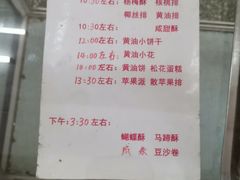 10:30左右: 杨梅酥 核桃排
椰丝排 黄油排
10:30左右: 咸甜酥
12:00左右: 黄油小饼干
14:00左右: 黄油小花
左右: 黄油饼 松花蛋糕
13:30左右: 苹果派 散苹果排
下午: 3:30左右:
蝴蝶酥 马蹄酥
豆沙卷